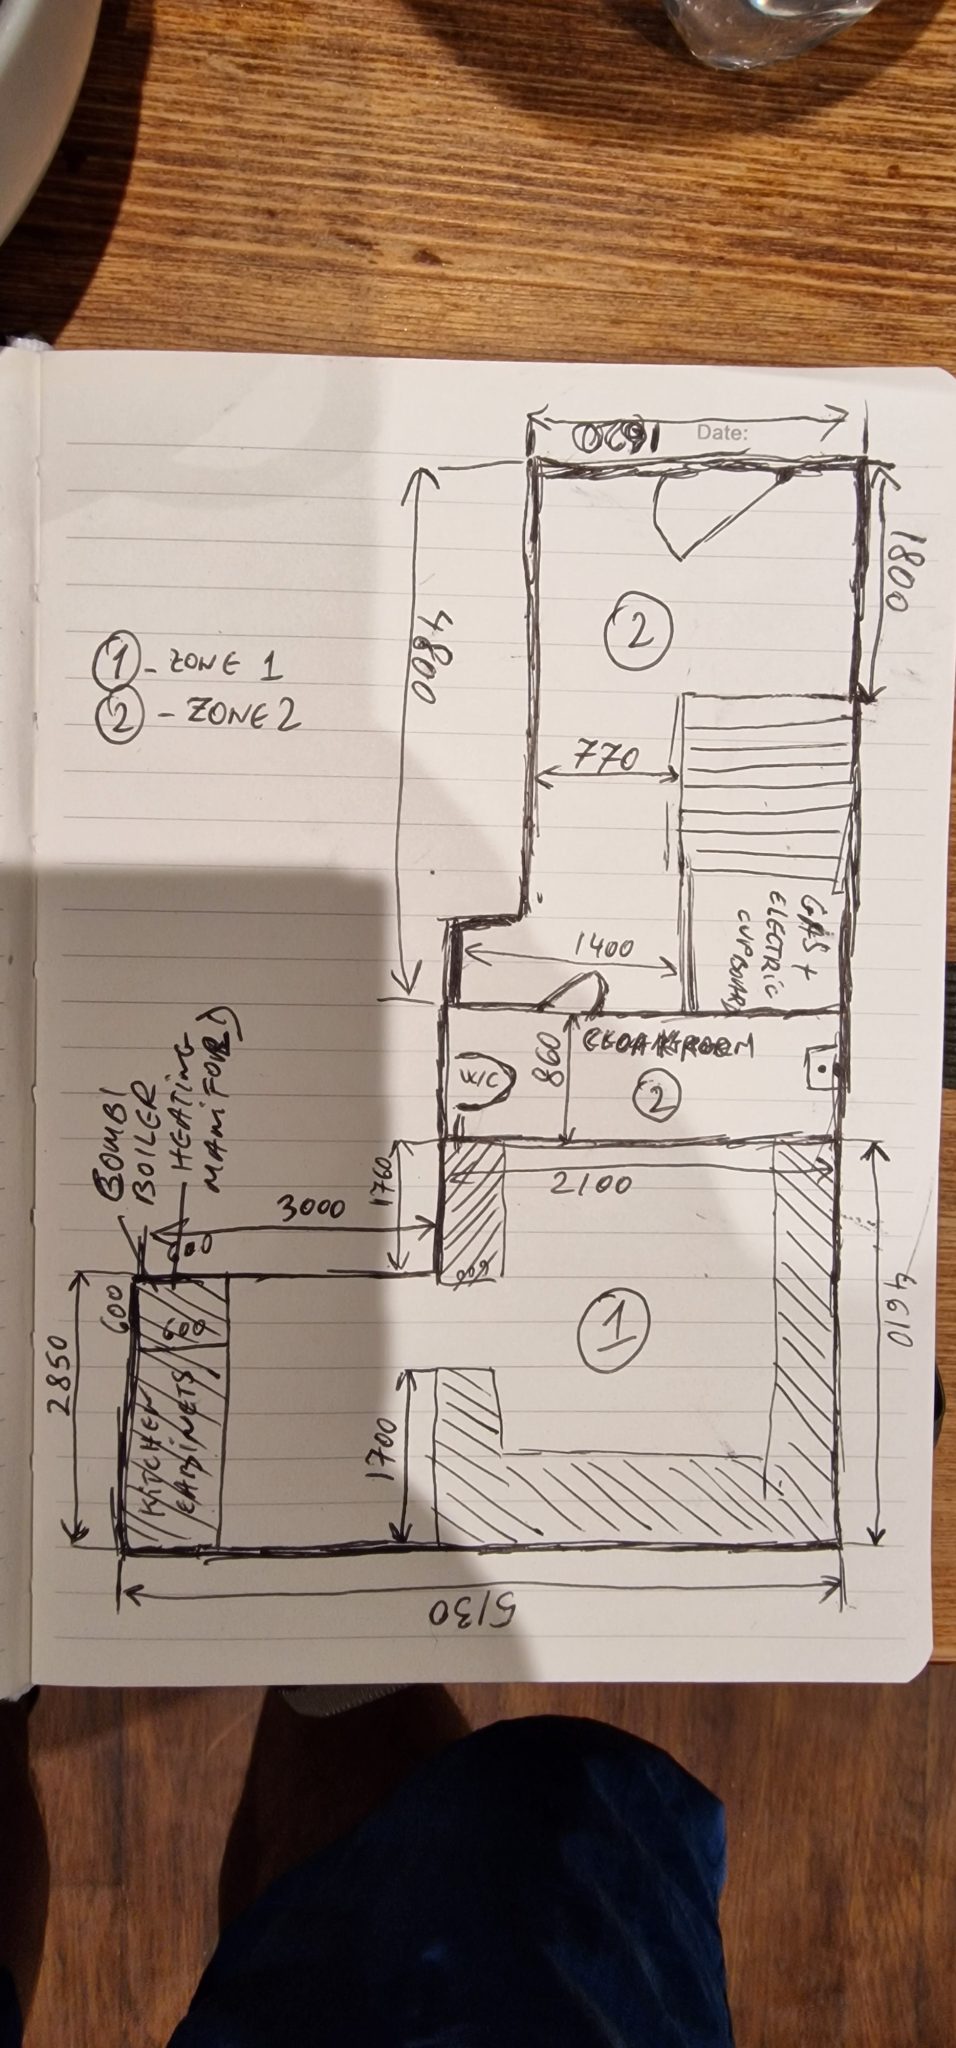 Date:
1620
1800
① - ZONE 1
② - ZONE 2
4800
②
770
1400
GAS +
ELECTRIC
CUPBOARD
CLOAKROOM
860
W/C
②
COMBI
BOILER
HEATING
MANIFOLD
1760
2100
3000
600
600
2850
①
4610
KITCHEN
CABINETS
1700
5130